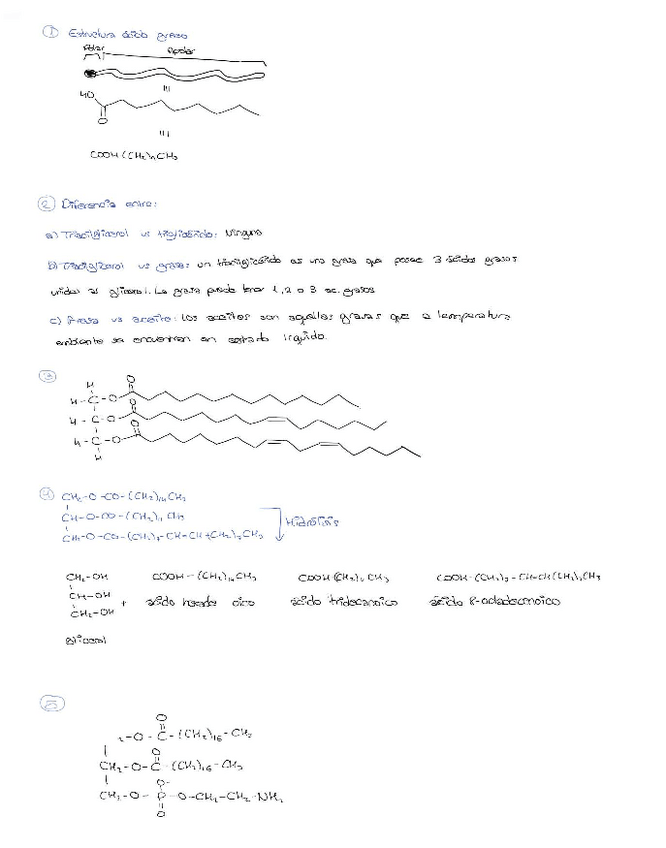 ① Estructura ácido graso
Polar Apolar
HO
O
COOH(CH₂)ₙCH₃
② Diferencia entre:
a) Triacilglicerol vs triglicérido: Ninguna
b) Triacilglicerol vs grasa: un triacilglicérido es una grasa que posee 3 ácidos grasos
unidos al glicerol. La grasa puede tener 1, 2 o 3 ac. grasos
c) Grasa vs aceite: Los aceites son aquellas grasas que a temperatura
ambiente se encuentran en estado líquido.
③
H O
H-C-O O
H-C-O O
H-C-O
H
④ CH₂-O-CO-(CH₂)₁₄CH₃
CH-O-CO-(CH₂)₁₁CH₃ Hidrólisis
CH₂-O-CO-(CH₂)₇-CH=CH(CH₂)₇CH₃
CH₂-OH COOH-(CH₂)₁₄CH₃ COOH(CH₂)₁₁CH₃ COOH-(CH₂)₇-CH=CH(CH₂)₇CH₃
CH-OH + ácido oico ácido tridecanoico ácido octadecanoico
CH₂-OH
glicerol
⑤
O
₂-O-C-(CH₂)₁₆-CH₃
O
CH₂-O-C-(CH₂)₁₆-CH₃
O-
CH₂-O-P-O-CH₂-CH₂-NH₂
O